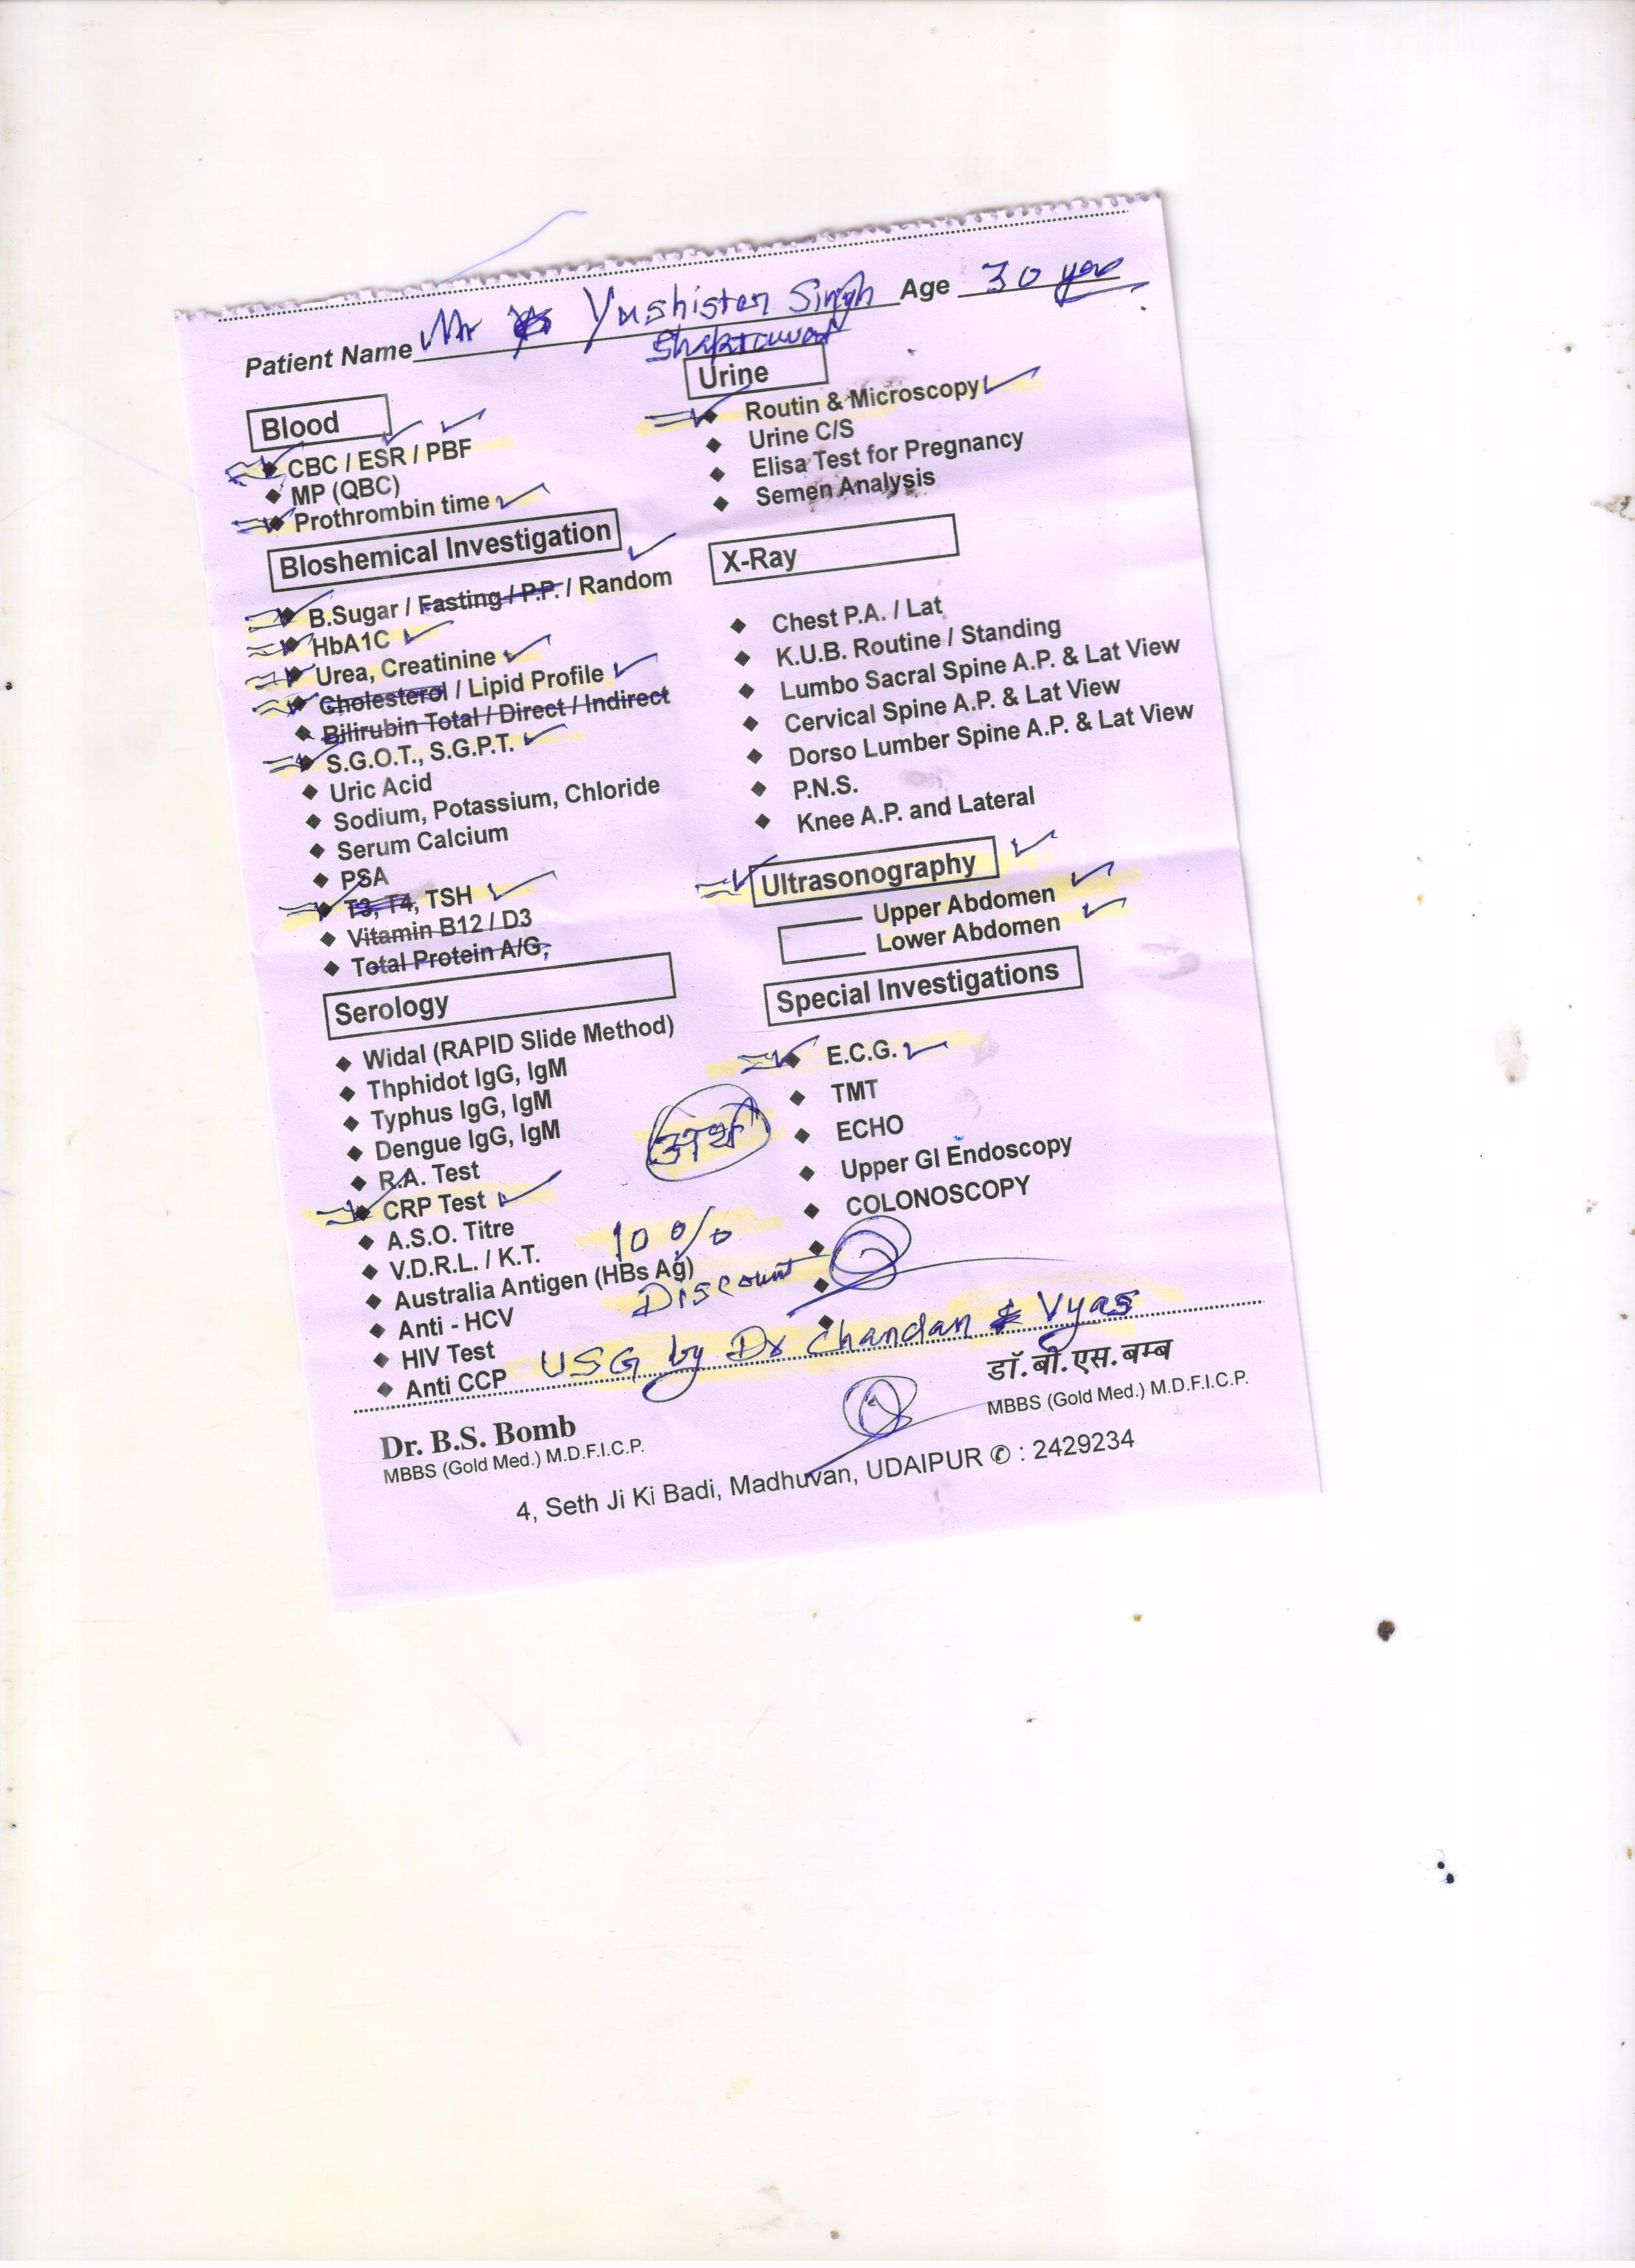 Patient Name Mr Yushister Singh Age 30 yrs
Shaktawat
Blood
CBC / ESR / PBF
MP (QBC)
Prothrombin time
Bloshemical Investigation
B.Sugar / Fasting / P.P. / Random
HbA1C
Urea, Creatinine
Cholesterol / Lipid Profile
Bilirubin Total / Direct / Indirect
S.G.O.T., S.G.P.T.
Uric Acid
Sodium, Potassium, Chloride
Serum Calcium
PSA
T3, T4, TSH
Vitamin B12 / D3
Total Protein A/G,
Serology
Widal (RAPID Slide Method)
Thphidot IgG, IgM
Typhus IgG, IgM
Dengue IgG, IgM
R.A. Test
CRP Test
A.S.O. Titre
V.D.R.L. / K.T.
Australia Antigen (HBs Ag)
Anti - HCV
HIV Test
Anti CCP
Urine
Routin & Microscopy
Urine C/S
Elisa Test for Pregnancy
Semen Analysis
X-Ray
Chest P.A. / Lat
K.U.B. Routine / Standing
Lumbo Sacral Spine A.P. & Lat View
Cervical Spine A.P. & Lat View
Dorso Lumber Spine A.P. & Lat View
P.N.S.
Knee A.P. and Lateral
Ultrasonography
Upper Abdomen
Lower Abdomen
Special Investigations
E.C.G.
TMT
ECHO
Upper GI Endoscopy
COLONOSCOPY
10 %
Discount
USG by Dr Chandan Vyas
डॉ. बी. एस. बम्ब
MBBS (Gold Med.) M.D.F.I.C.P.
Dr. B.S. Bomb
MBBS (Gold Med.) M.D.F.I.C.P.
4, Seth Ji Ki Badi, Madhuvan, UDAIPUR ✆ : 2429234